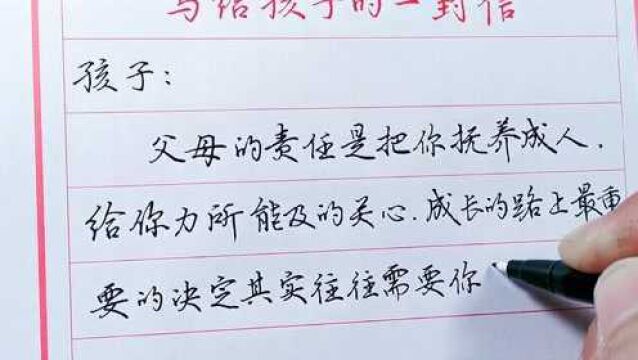 写给孩子的一封信
孩子：
父母的责任是把你抚养成人.
给你力所能及的关心.成长的路上最重
要的决定其实往往需要你